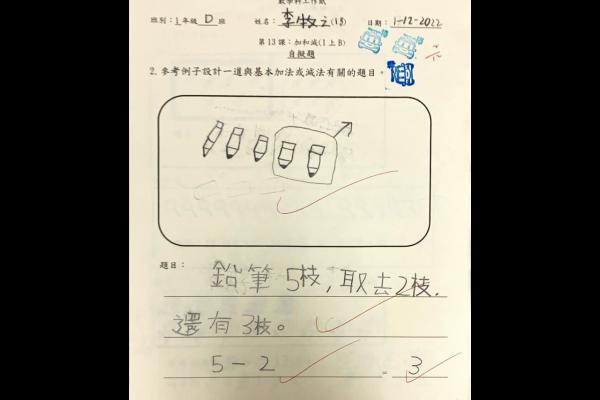 數學科工作紙
班別：1年級 D 班 姓名：李牧之(18) 日期：1-12-2022
第13課：加和減(1上B)
自擬題
2. 參考例子設計一道與基本加法或減法有關的題目。
題目：鉛筆5枝，取去2枝.
還有3枝。
5－2 = 3